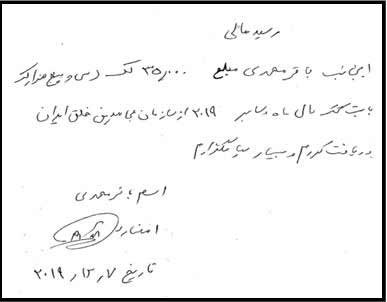 رسید مالی
اینجانب باقر محمدی مبلغ ۳۵,۰۰۰ لک (سی و پنج هزار لک
بابت کمک مالی ماه دسامبر ۲۰۱۹ از سازمان مجاهدین خلق ایران
دریافت کردم و بسیار سپاسگذارم
اسم باقر محمدی
امضاء
تاریخ ۷ ر ۱۲ ر ۲۰۱۹